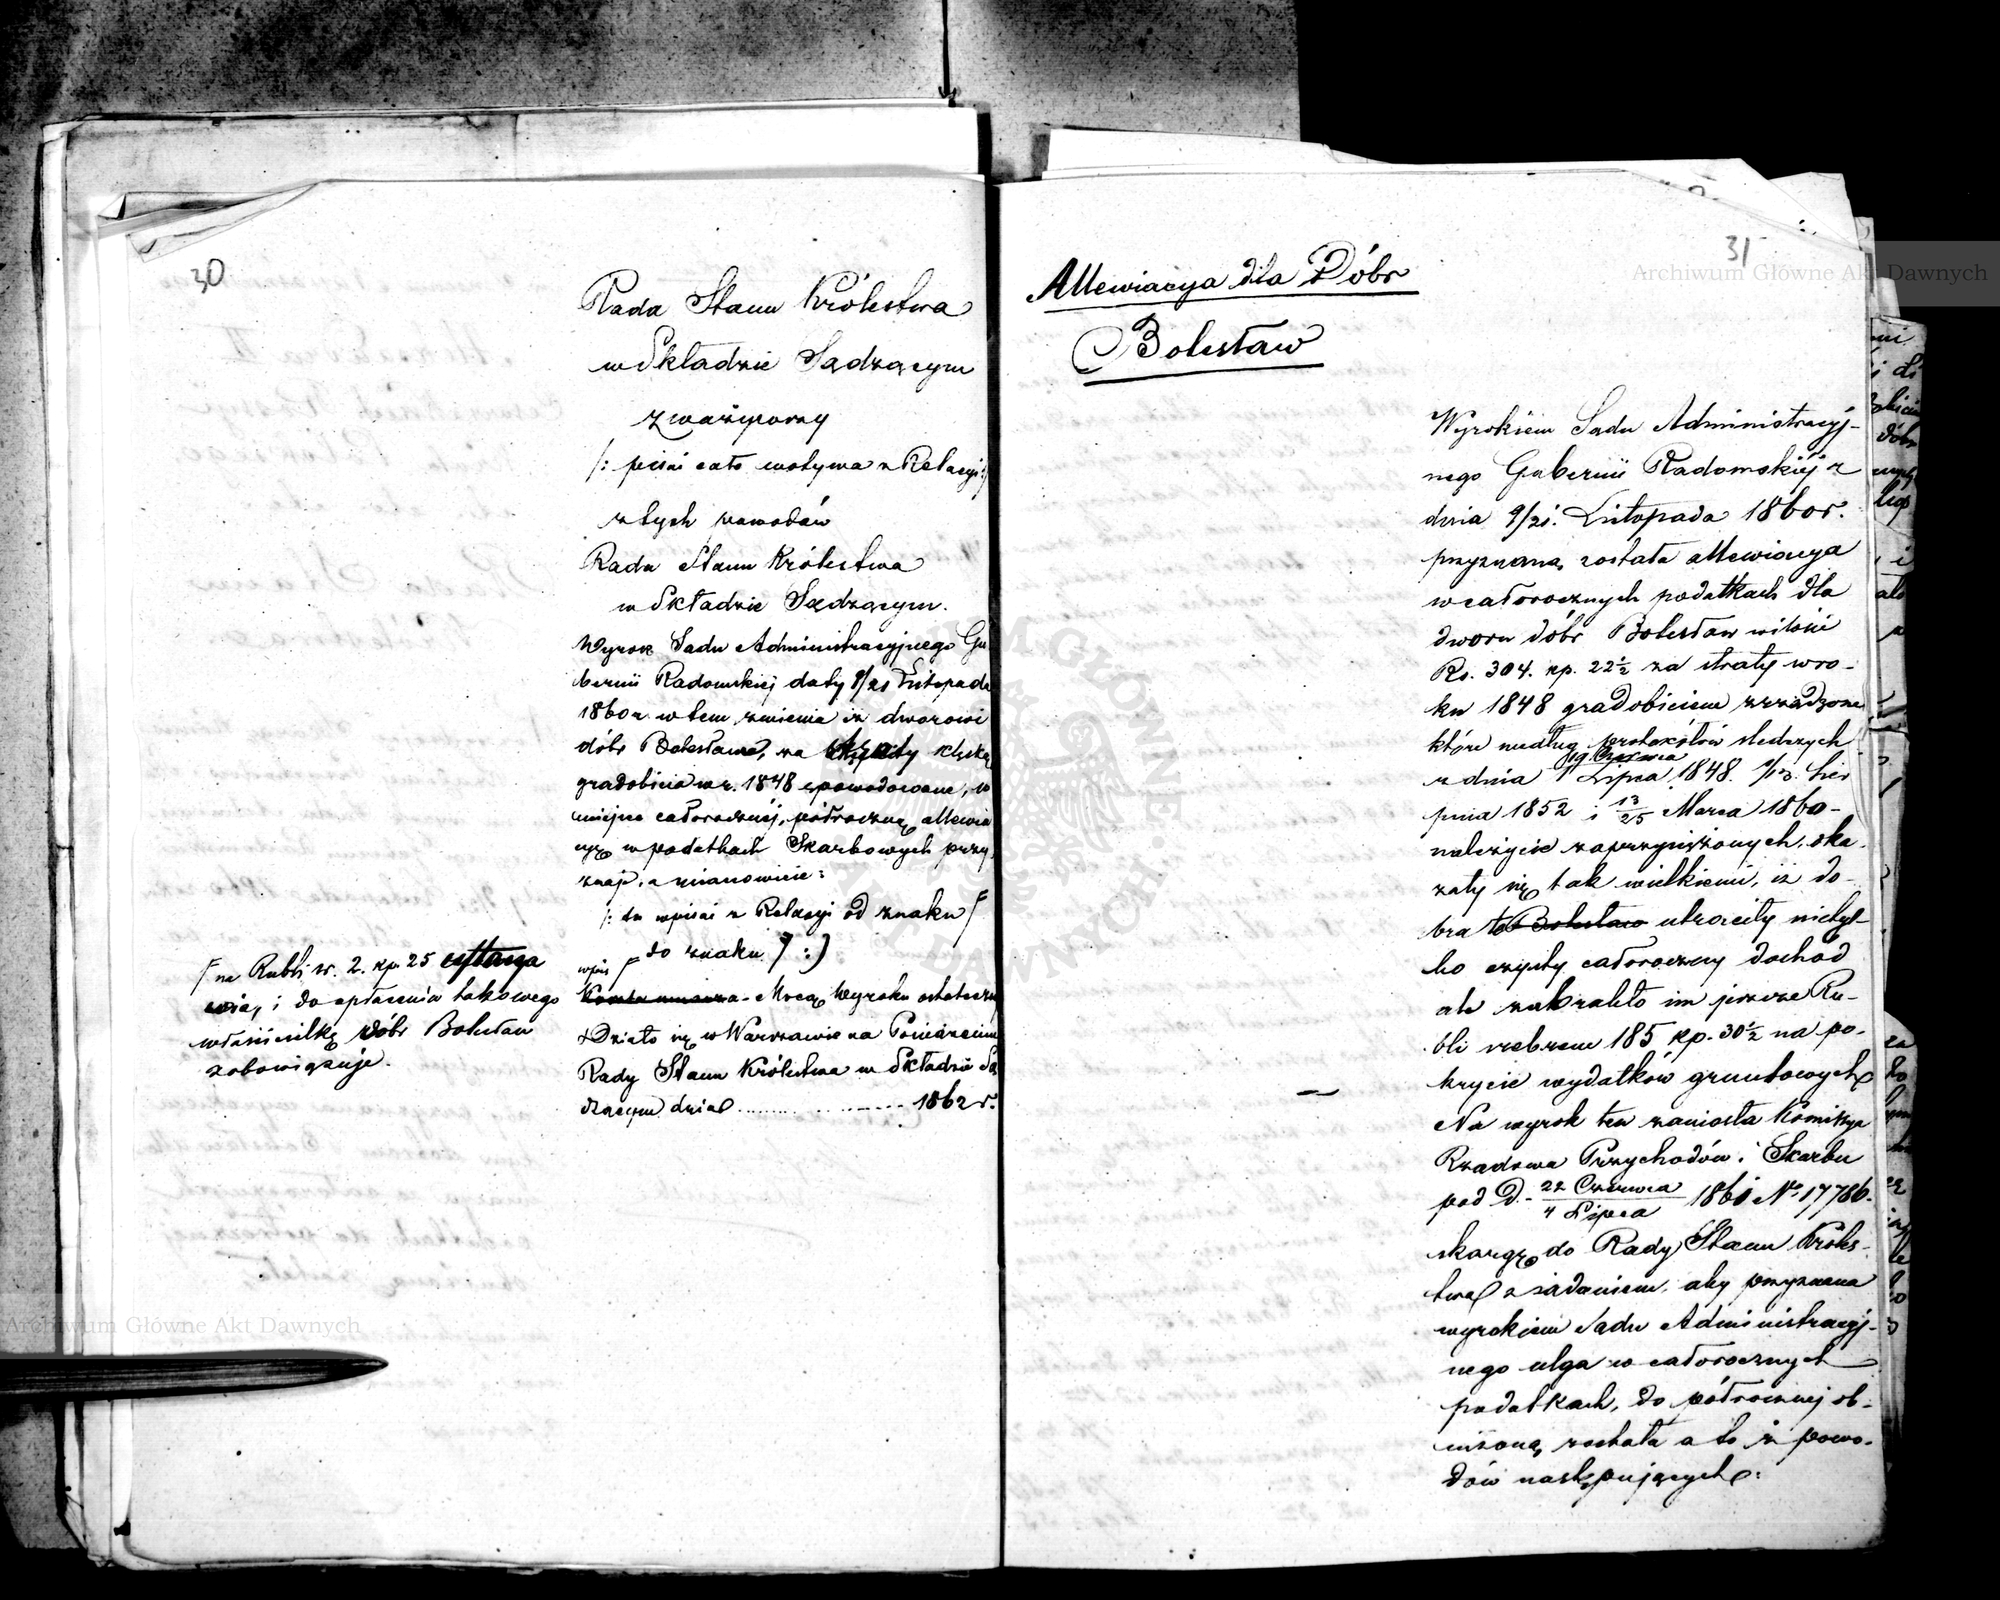 30
Rada Stanu Królestwa
w Składzie Sądzącym
zważywszy
/: pisać cało motywa z Relacyi :/
z tych powodów
Rada Stanu Królestwa
w Składzie Sądzącym.
Wyrok Sądu Administracyjnego Gu
bernii Radomskiej daty 9/21 Listopada
1860 r. w tem zmienia iż dworowi
dóbr Bolesław, za straty klęską
gradobicia w r. 1848 spowodowane, w
miejsce całorocznéj, półroczną allewia
cyę w podatkach Skarbowych przy
znaje, a mianowicie:
/: tu wpisać z Relacyi od znaku F
do znaku 7 :)
wpis F
Mocą Wyroku ostateczn
Działo się w Warszawie na Posiedzeniu
Rady Stanu Królestwa w Składzie Są
dzącym dnia .................. 1862 r.
F na Rubli sr. 2. kp. 25
i do opłacenia takowego
właścicielkę dóbr Bolesław
zobowiązuje.
31
Allewiacya dla Dóbr
Bolesław
Wyrokiem Sądu Administracyj-
nego Gubernii Radomskiéj z
dnia 9/21. Listopada 1860 r.
przyznaną została allewiacya
w całorocznych podatkach dla
dworu dóbr Bolesław w ilości
Rs. 304. kp. 22½ za straty w ro-
ku 1848 gradobiciem zrządzone
które według protokółów śledczych
19 Czerwca
z dnia 1 Lipca 1848. 1/13. Sier
pnia 1852 i 13/25 Marca 1860-
należycie zaprzysiężonych, oka-
zały się tak wielkiemi, iż do-
bra te Bolesław utraciły nietyl-
ko czysty całoroczny dochód
ale zabrakło im jeszcze Ru-
bli srebrem 185 kp. 30½ na po-
krycie wydatków gruntowych
Na wyrok ten zaniosła Komissya
Rządowa Przychodów i Skarbu
pod D. 22 Czerwca/4 Lipca 1861 No 17786.
skargę do Rady Stanu Króles-
twa z żądaniem, aby przyznana
wyrokiem Sądu Administracyj-
nego ulga w całorocznych
podatkach, do półrocznej ob-
niżoną została a to z powo-
dów następujących:
Archiwum Główne Akt Dawnych
Archiwum Główne Akt Dawnych